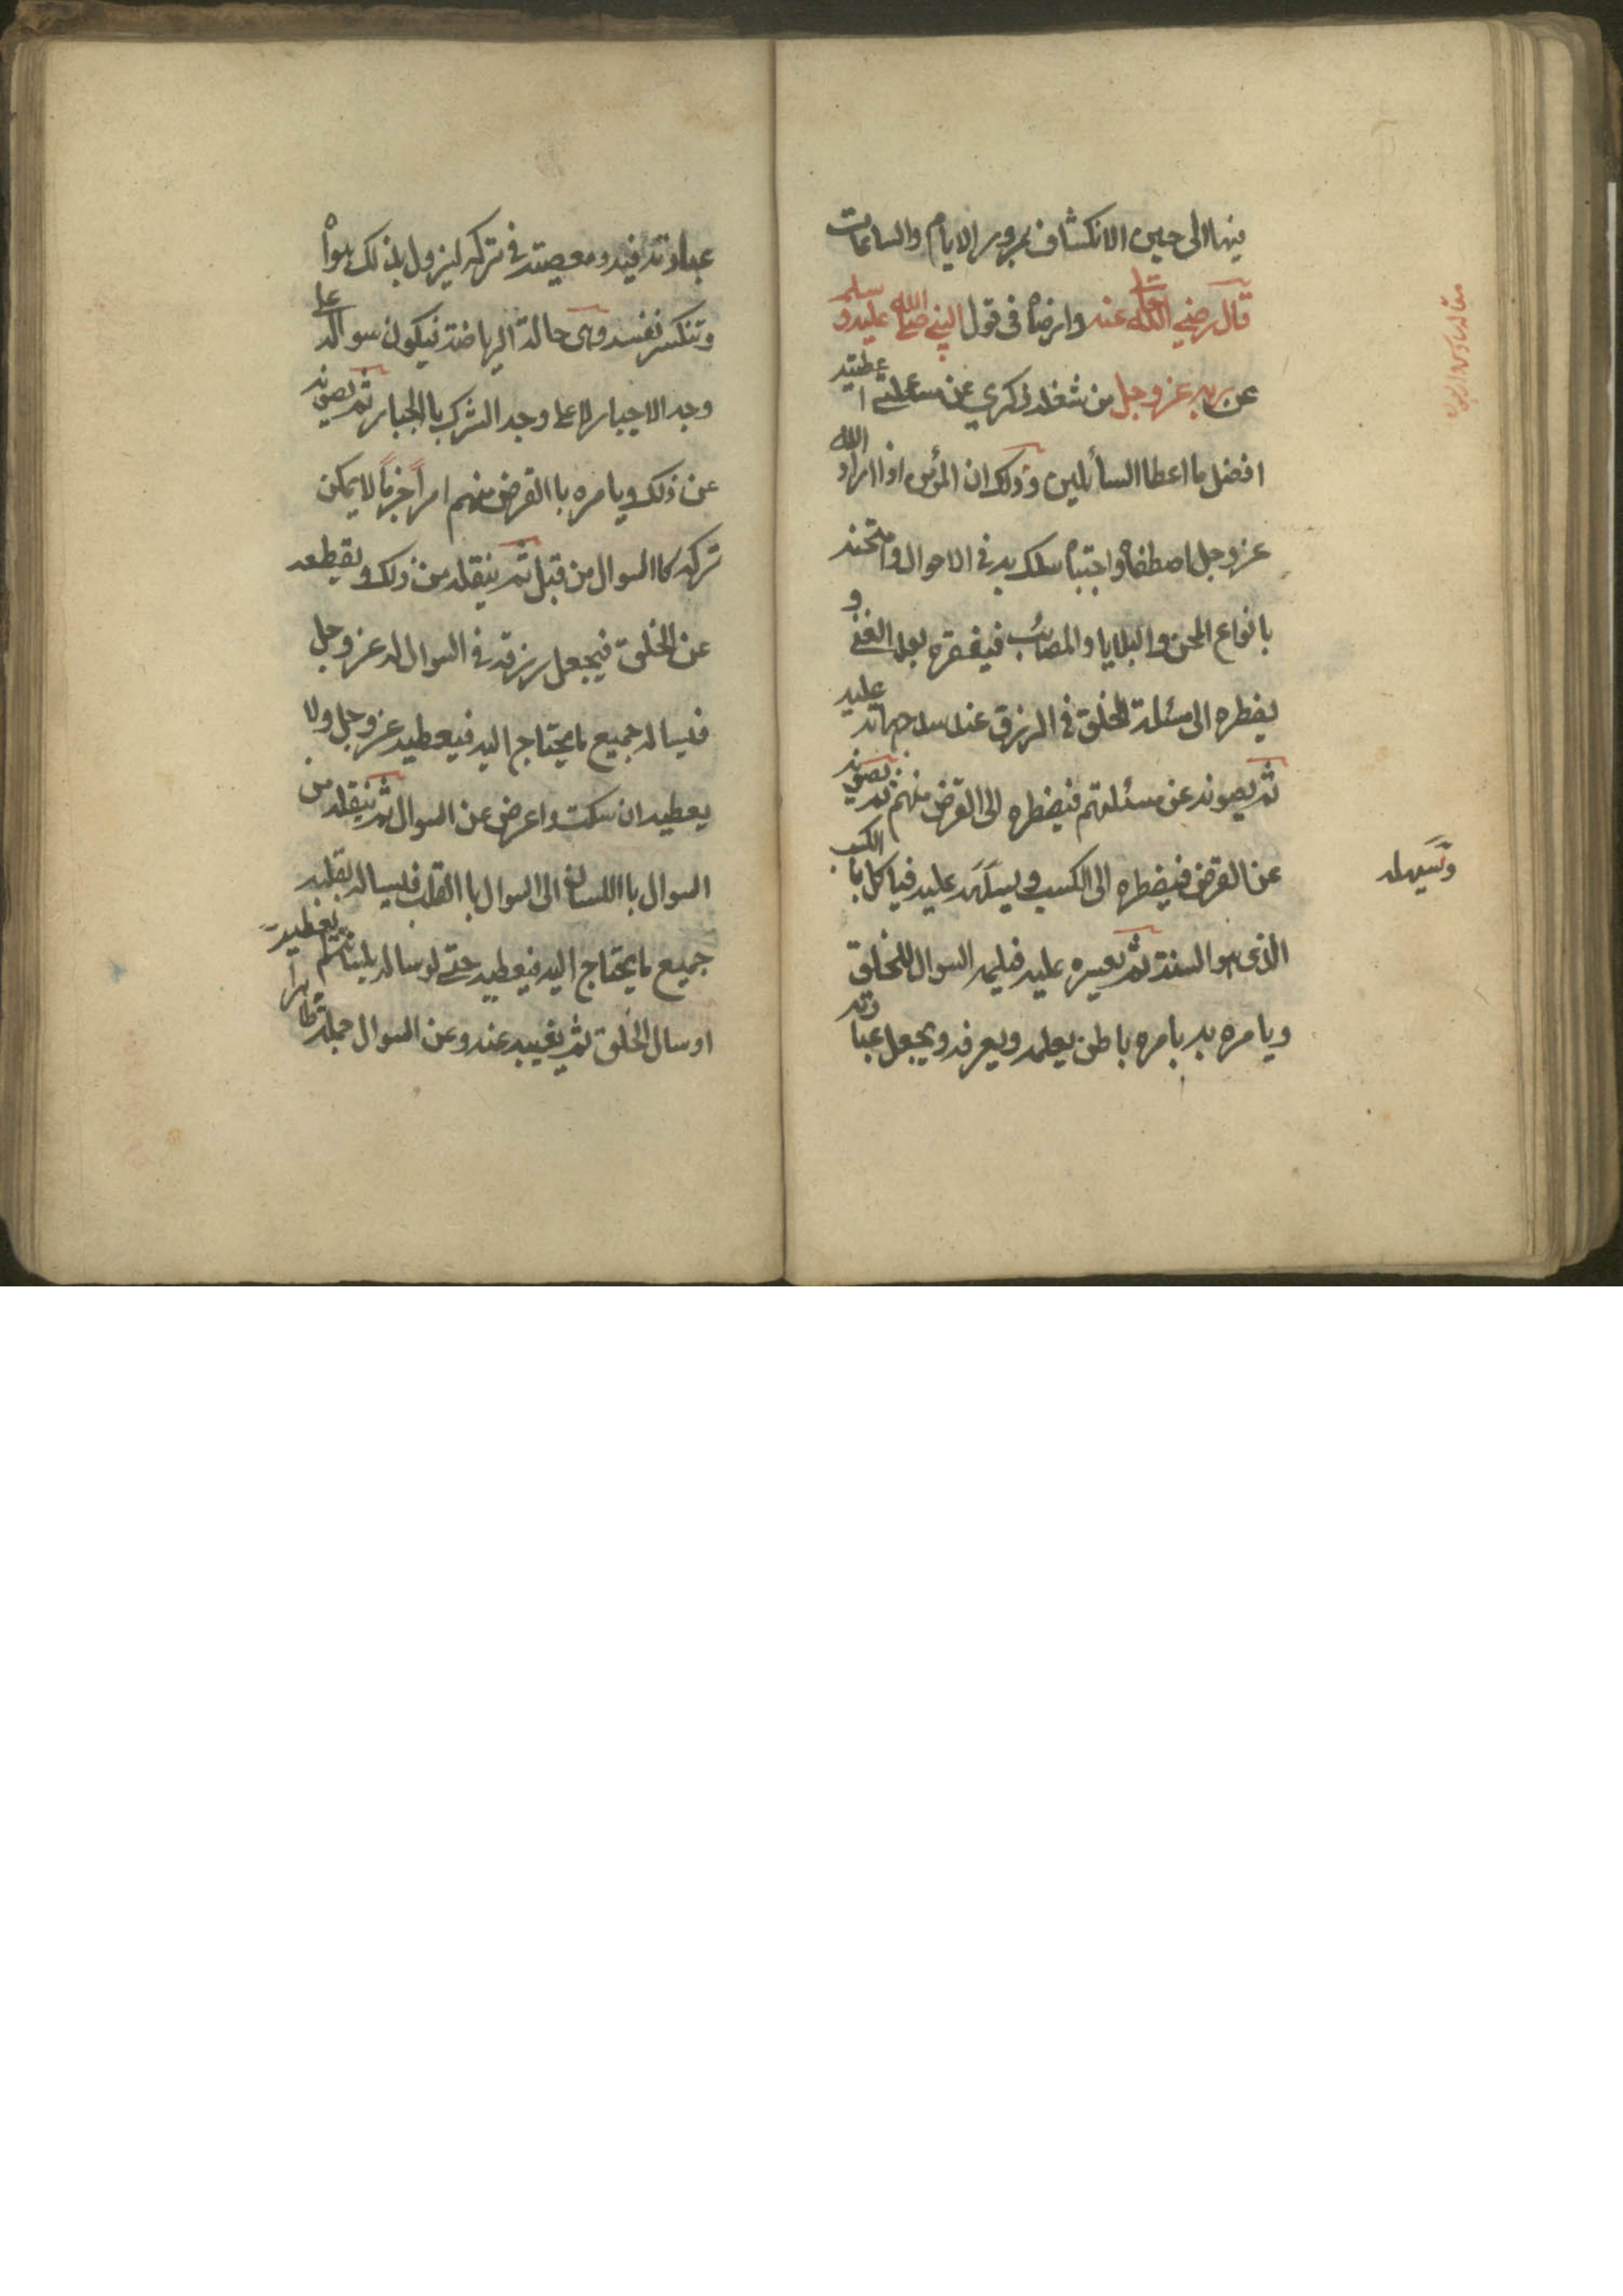 فيها الى حين الانكشاف بمرور الايام والساعات
قال رضي الله تعالى عنه وارضاه فى قول النبي صلى الله عليه وسلم
عن ربه عز وجل من شغله ذكري عن مسئلتي اعطيته
افضل ما اعطا السائلين وذلك ان المؤمن اذا اراد الله
عز وجل اصطفاه واجتباه سلك به فى الاحوال وامتحنه
بانواع المحن والبلايا والمصائب فيفقره بعد الغنى و
يضطره الى مسئلة الخلق فى الرزق عند سد جهاته عليه
ثم يصونه عن مسئلتهم فيضطره الى القرض منهم ثم يصونه
عن القرض فيضطره الى الكسب ويسهله عليه فياكل بالكسب
الذى هو السنة ثم يعسره عليه فيلهمه السوال للخلق
ويامره به بامره باطن يعلمه ويعرفه ويجعل عبادته
وتسهيله
عبادته فيه ومعصيته فى تركه ليزول بذلك هواه
وتنكسر نفسه وهى حالة الرياضة فيكون سواله على
وجه الاجبار لا على وجه الشرك بالجبار ثم يصونه
عن ذلك ويامره باالقرض منهم امراً جزماً لا يمكن
تركه كاالسوال من قبل ثم ينقله من ذلك ويقطعه
عن الخلق فيجعل رزقه فى السوال له عز وجل
فيساله جميع ما يحتاج اليه فيعطيه عز وجل ولا
يعطيه ان سكت واعرض عن السوال ثم ينقله من
السوال باالسان الى السوال باالقلب فيساله بقلبه
جميع ما يحتاج اليه فيعطيه حتى لو ساله بلسانه لم يعطيه
او سال الخلق ثم يغيبه عنه وعن السوال جملة ظاهراً